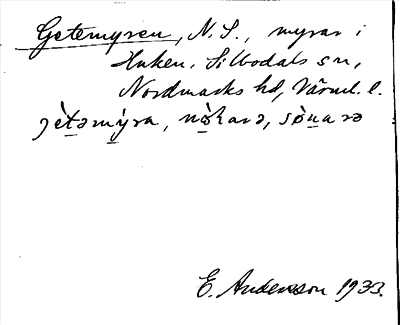 Getemyren, N. S., myrar i
Huken, Silbodals sn,
Nordmarks hd, Värml. l.
jètəmýra, nòkarə, sònarə
E. Andersson 1933.